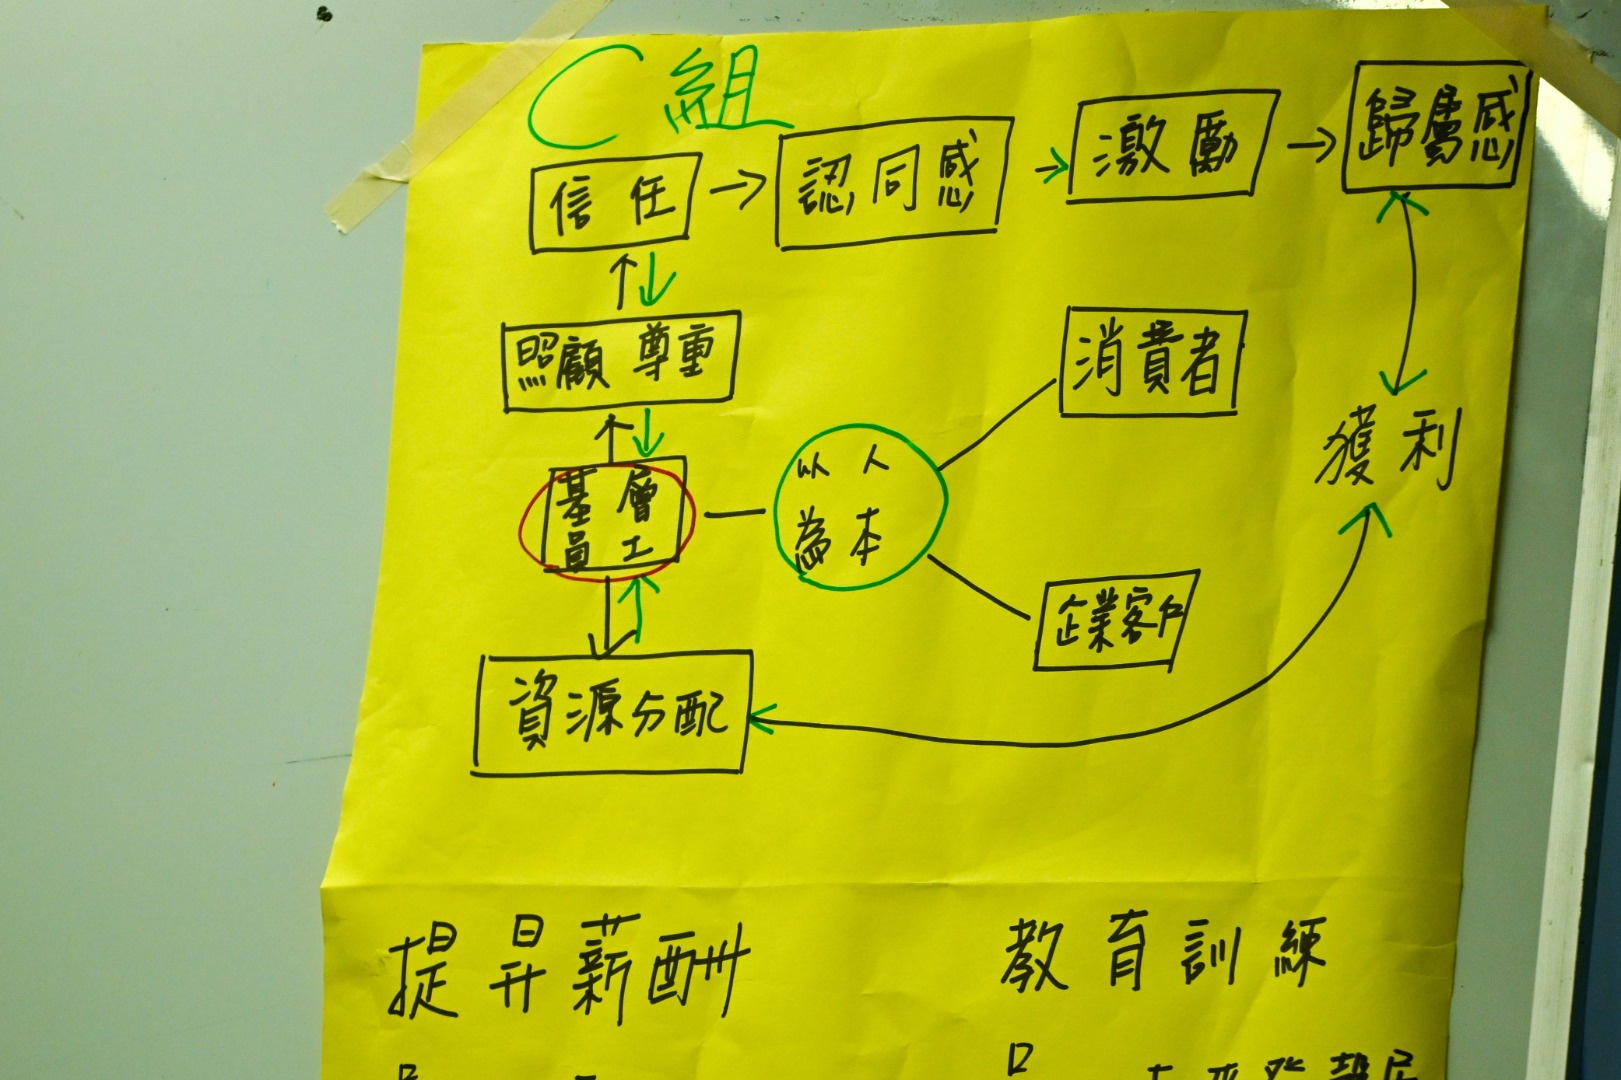 C組
信任
認同感
激勵
歸屬感
照顧 尊重
消費者
獲利
基層
員工
以人
為本
企業客戶
資源分配
提昇薪酬
教育訓練